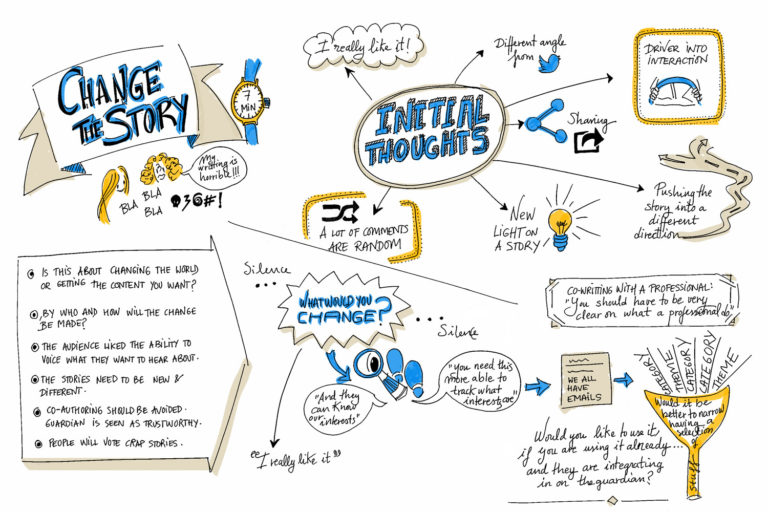 CHANGE
THE STORY
7
MIN
My
writing is
horrible!!!
BLA
BLA
BLA
36#!
I really like it!
Different angle
from
INITIAL
THOUGHTS
Sharing
DRIVER INTO
INTERACTION
Pushing the
story into a
different
direction
NEW
LIGHT ON
A STORY
A LOT OF COMMENTS
ARE RANDOM
IS THIS ABOUT CHANGING THE WORLD
OR GETTING THE CONTENT YOU WANT?
BY WHO AND HOW WILL THE CHANGE
BE MADE?
THE AUDIENCE LIKED THE ABILITY TO
VOICE WHAT THEY WANT TO HEAR ABOUT.
THE STORIES NEED TO BE NEW &
DIFFERENT.
CO-AUTHORING SHOULD BE AVOIDED.
GUARDIAN IS SEEN AS TRUSTWORTHY.
PEOPLE WILL VOTE CRAP STORIES.
Silence
...
WHAT WOULD YOU
CHANGE?
...
Silence
"And they
can know
our interests"
"You need this
more able to
track what
interests are"
"I really like it"
CO-WRITING WITH A PROFESSIONAL:
"You should have to be very
clear on what a professional do"
WE ALL
HAVE
EMAILS
CATEGORY
THEME
CATEGORY
CATEGORY
THEME
Would it be
better to narrow
having a
selection
of
stuff
Would you like to use it
if you are using it already...
and they are integrating
in on the guardian?